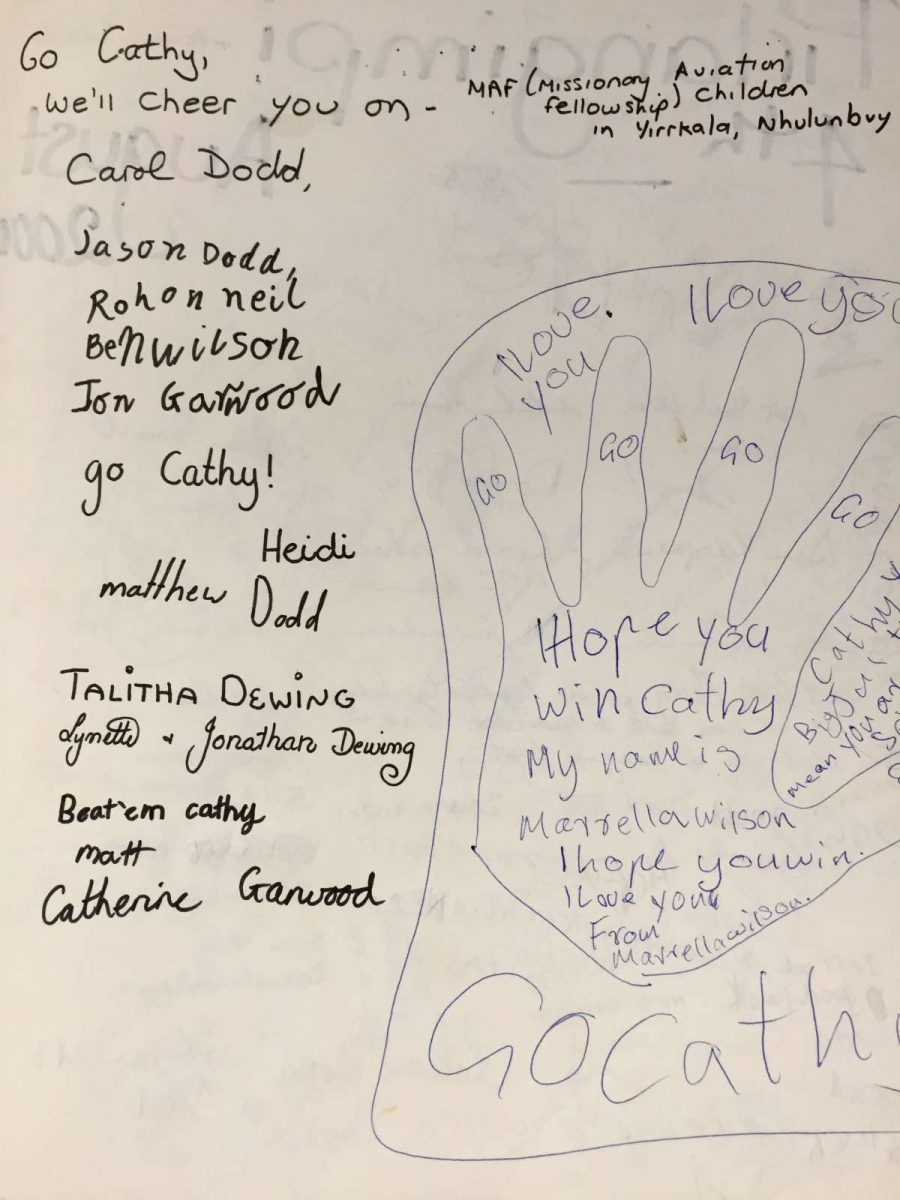 Go Cathy,
we'll cheer you on -
MAF (Missionary Aviation
fellowship) children
in Yirrkala, Nhulunbuy
Carol Dodd,
Jason Dodd,
Rohan neil
Ben wilson
Jon Garwood
go Cathy!
Heidi
matthew Dodd
TALITHA DEWING
Lynette + Jonathan Dewing
Beat'em cathy
matt
Catherine Garwood
I Love.
you
I Love you
GO
GO
GO
GO
I Hope you
win Cathy
My name is
Marrella wilson
I hope you win.
I Love you
From
Marrella wilson.
Cathy
Big
mean you
GO Cathy